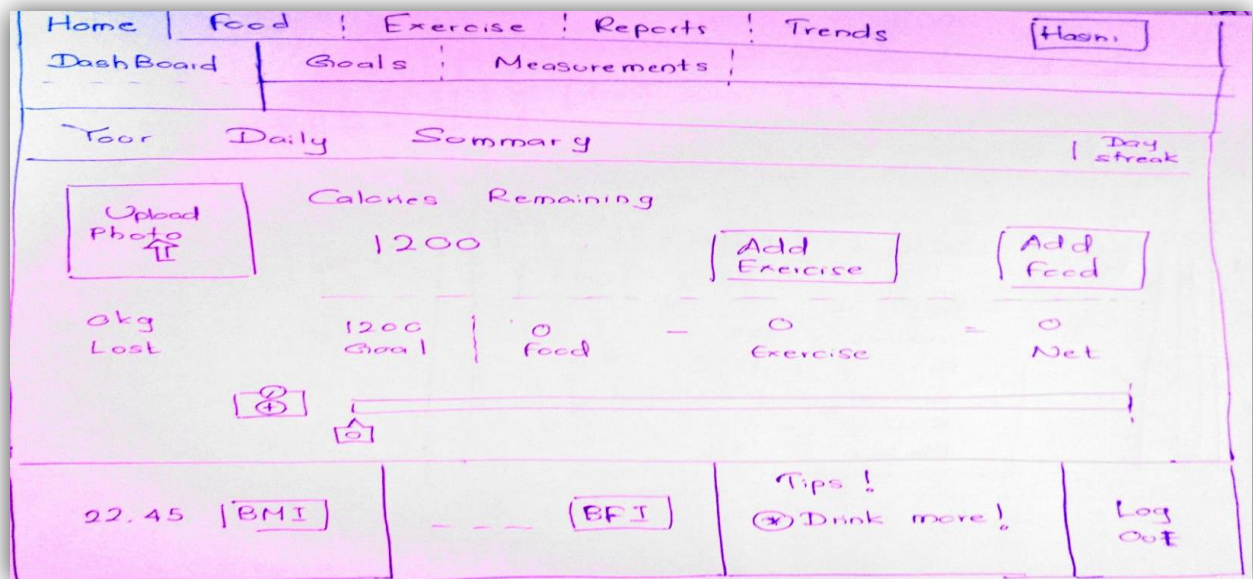 Home Food Exercise Reports Trends Hasni
DashBoard Goals Measurements
Your Daily Summary
1 Day
streak
Upload
Photo
Calories Remaining
1200
Add
Exercise
Add
Food
0kg
Lost
1200
Goal
0
Food
-
0
Exercise
=
0
Net
0
22.45 BMI
--- BFI
Tips !
Drink more!
Log
Out